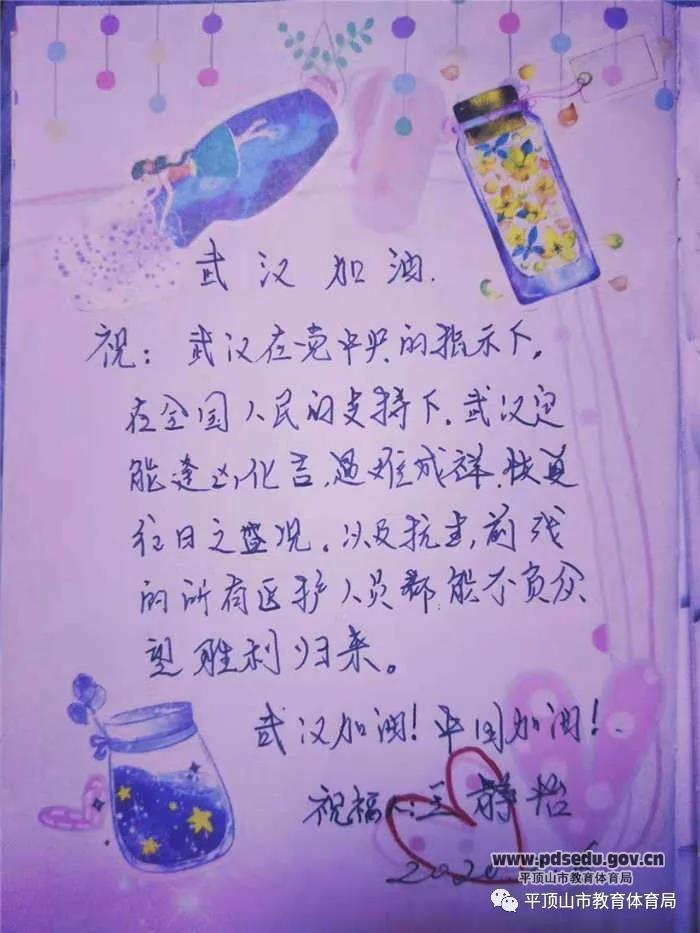 武汉加油.
祝：武汉在党中央的指示下，
在全国人民的支持下，武汉定
能逢凶化吉，遇难成祥，恢复
往日之盛况。以及抗击，前线
的所有医护人员都能不负众
望胜利归来。
武汉加油！中国加油！
祝福人：王静怡
2020.
www.pdsedu.gov.cn
平顶山市教育体育局
平顶山市教育体育局